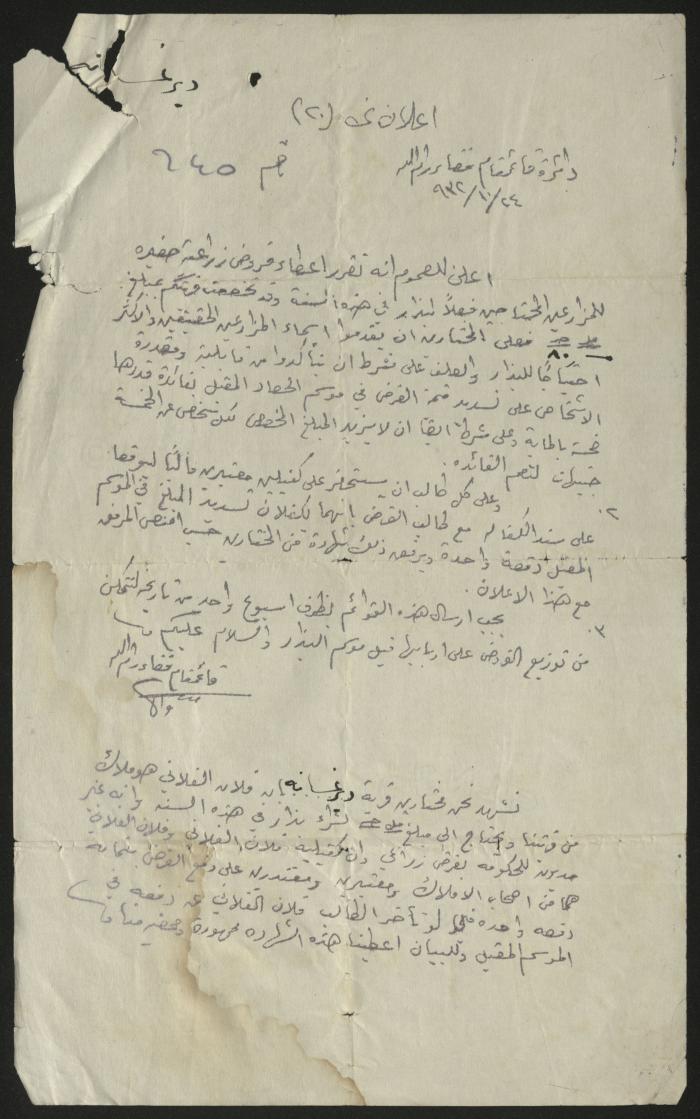 دير غسانه
اعلان نمرة (٢٠)
دائرة قائمقام قضاء رام الله
٢٤/١٠/٩٣٢
رقم ٦٤٥
اعلن للعموم انه تقرر اعطاء قروض زراعية صغيره
للمزارعين المحتاجين فعلاً لبذار في هذه السنة وقد تخصصت قريتكم بمبلغ
٨٠ فعلى المختارين ان يقدموا اسماء المزارعين الحقيقيين والاكثر
احتياجًا للبذار والعلف على شرط ان يتأكدوا من قابلية ومقدرة
الاشخاص على تسديد قيمة القرض في موسم الحصاد المقبل بفائدة قدرها
خمسة بالماية وعلى شرط ايضًا ان لا يزيد المبلغ المخصص لكل شخص عن الخمسة
جنيهات لتعم الفائده.
٢. وعلى كل طالب ان يستحضر على كفيلين معتبرين ماليًا ليوقعا
على سند الكفاله مع طالب القرض بانهما يكفلان تسديد المبلغ في الموسم
المقبل دفعة واحدة ويرفق ذلك بشهادة من المختارين حسب النص المرفق
مع هذا الاعلان.
٣. يجب ارسال هذه القوائم بظرف اسبوع واحد من تاريخه لنتمكن
من توزيع القروض على اربابها قبل موسم البذار والسلام عليكم
قائمقام قضاء رام الله
نشهد نحن مختارين قرية دير غسانه بان فلان الفلاني هو ملاك
من قريتنا ومحتاج الى مبلغ لشراء بذار في هذه السنه وانه غير
مديون للحكومه بقرض زراعي وان كفيليه فلان الفلاني وفلان الفلاني
هما من اصحاب الاملاك ومعتبرين ومقتدرين على دفع القرض بتمامه
دفعه واحده فيما لو تأخر الطالب فلان الفلاني عن دفعه في
الموسم المقبل وللبيان اعطينا هذه الشهاده ممهورة بختم منا